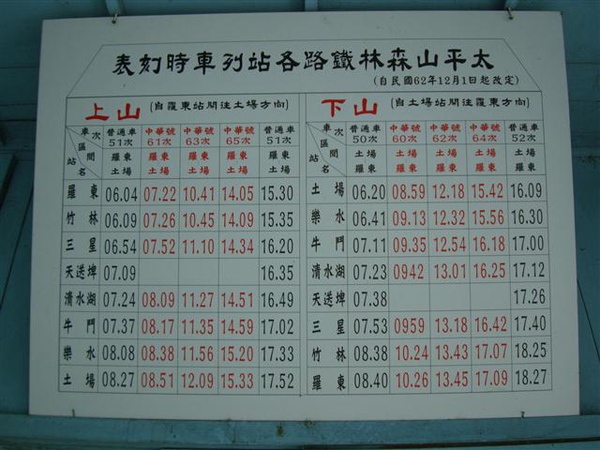 太平山森林鐵路各站列車時刻表
(自民國62年12月1日起改定)
上山 (自羅東站開往土場方向)
車次 區間 站名 普通車 51次 中華號 61次 中華號 63次 中華號 65次 普通車 51次
羅東 土場 羅東 土場 羅東 土場 羅東 土場 羅東 土場
羅東 06.04 07.22 10.41 14.05 15.30
竹林 06.09 07.26 10.45 14.09 15.35
三星 06.54 07.52 11.10 14.34 16.20
天送埤 07.09 16.35
清水湖 07.24 08.09 11.27 14.51 16.49
牛鬥 07.37 08.17 11.35 14.59 17.02
樂水 08.08 08.38 11.56 15.20 17.33
土場 08.27 08.51 12.09 15.33 17.52
下山 (自土場站開往羅東方向)
車次 區間 站名 普通車 50次 中華號 60次 中華號 62次 中華號 64次 普通車 52次
土場 羅東 土場 羅東 土場 羅東 土場 羅東 土場 羅東
土場 06.20 08.59 12.18 15.42 16.09
樂水 06.41 09.13 12.32 15.56 16.30
牛鬥 07.11 09.35 12.54 16.18 17.00
清水湖 07.23 0942 13.01 16.25 17.12
天送埤 07.38 17.26
三星 07.53 0959 13.18 16.42 17.40
竹林 08.38 10.24 13.43 17.07 18.25
羅東 08.40 10.26 13.45 17.09 18.27